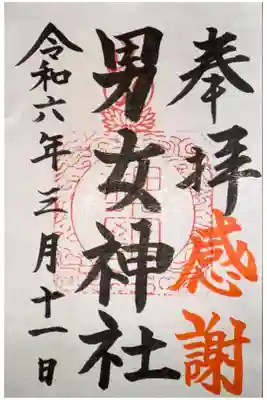 奉拝
感謝
男女神社
令和六年三月十一日